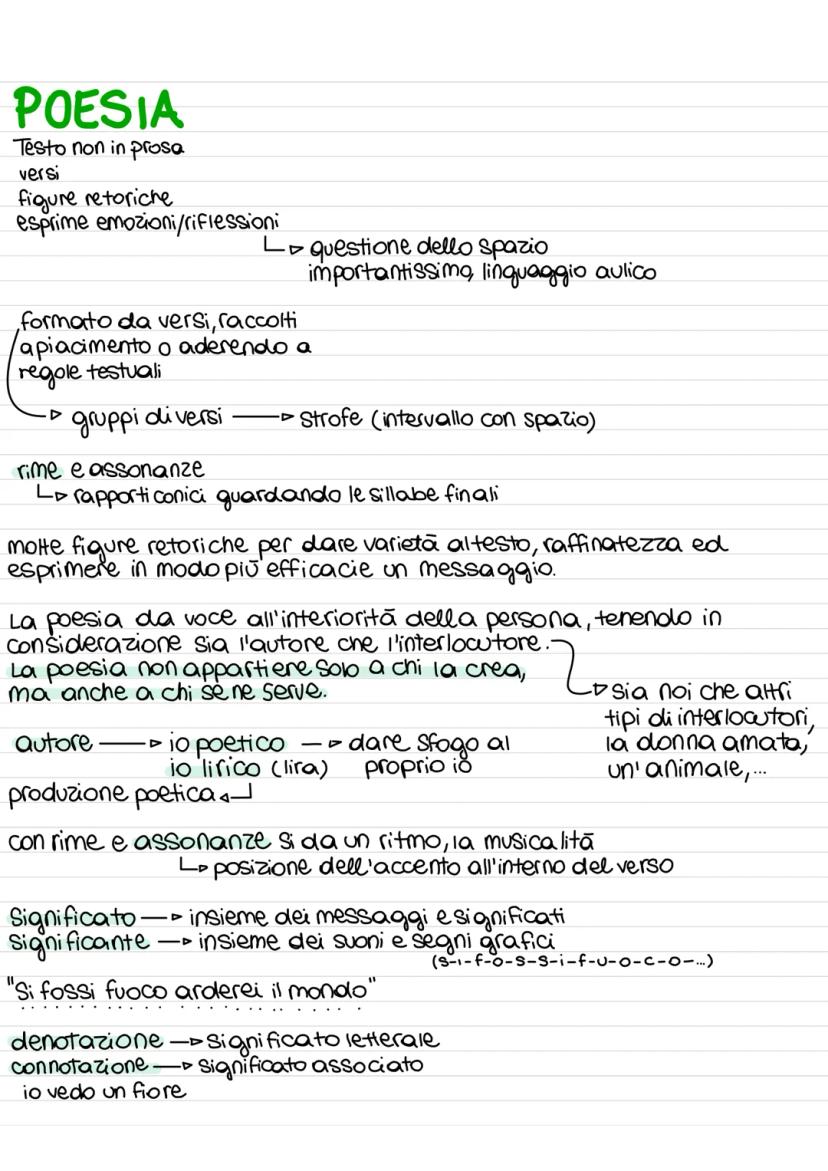 POESIA
Testo non in prosa
versi
figure retoriche
esprime emozioni/riflessioni
questione dello spazio
importantissimo, linguaggio aulico
formato da versi, raccolti
a piacimento o aderendo a
regole testuali
gruppi di versi → strofe (intervallo con spazio)
rime e assonanze
rapporti conici guardando le sillabe finali
molte figure retoriche per dare varietā al testo, raffinatezza ed
esprimere in modo piū efficacie un messaggio.
La poesia da voce all'interioritā della persona, tenendo in
considerazione sia l'autore che l'interlocutore.
La poesia non appartiene solo a chi la crea,
ma anche a chi se ne serve.
sia noi che altri
tipi di interlocutori,
la donna amata,
un'animale,...
autore → io poetico → dare sfogo al
io lirico (lira) proprio io
produzione poetica
con rime e assonanze si da un ritmo, la musicalitā
posizione dell'accento all'interno del verso
Significato → insieme dei messaggi e significati
significante → insieme dei suoni e segni grafici
(s-i-f-o-s-s-i-f-u-o-c-o-...)
"Si fossi fuoco arderei il mondo"
denotazione → significato letterale
connotazione → significato associato
io vedo un fiore